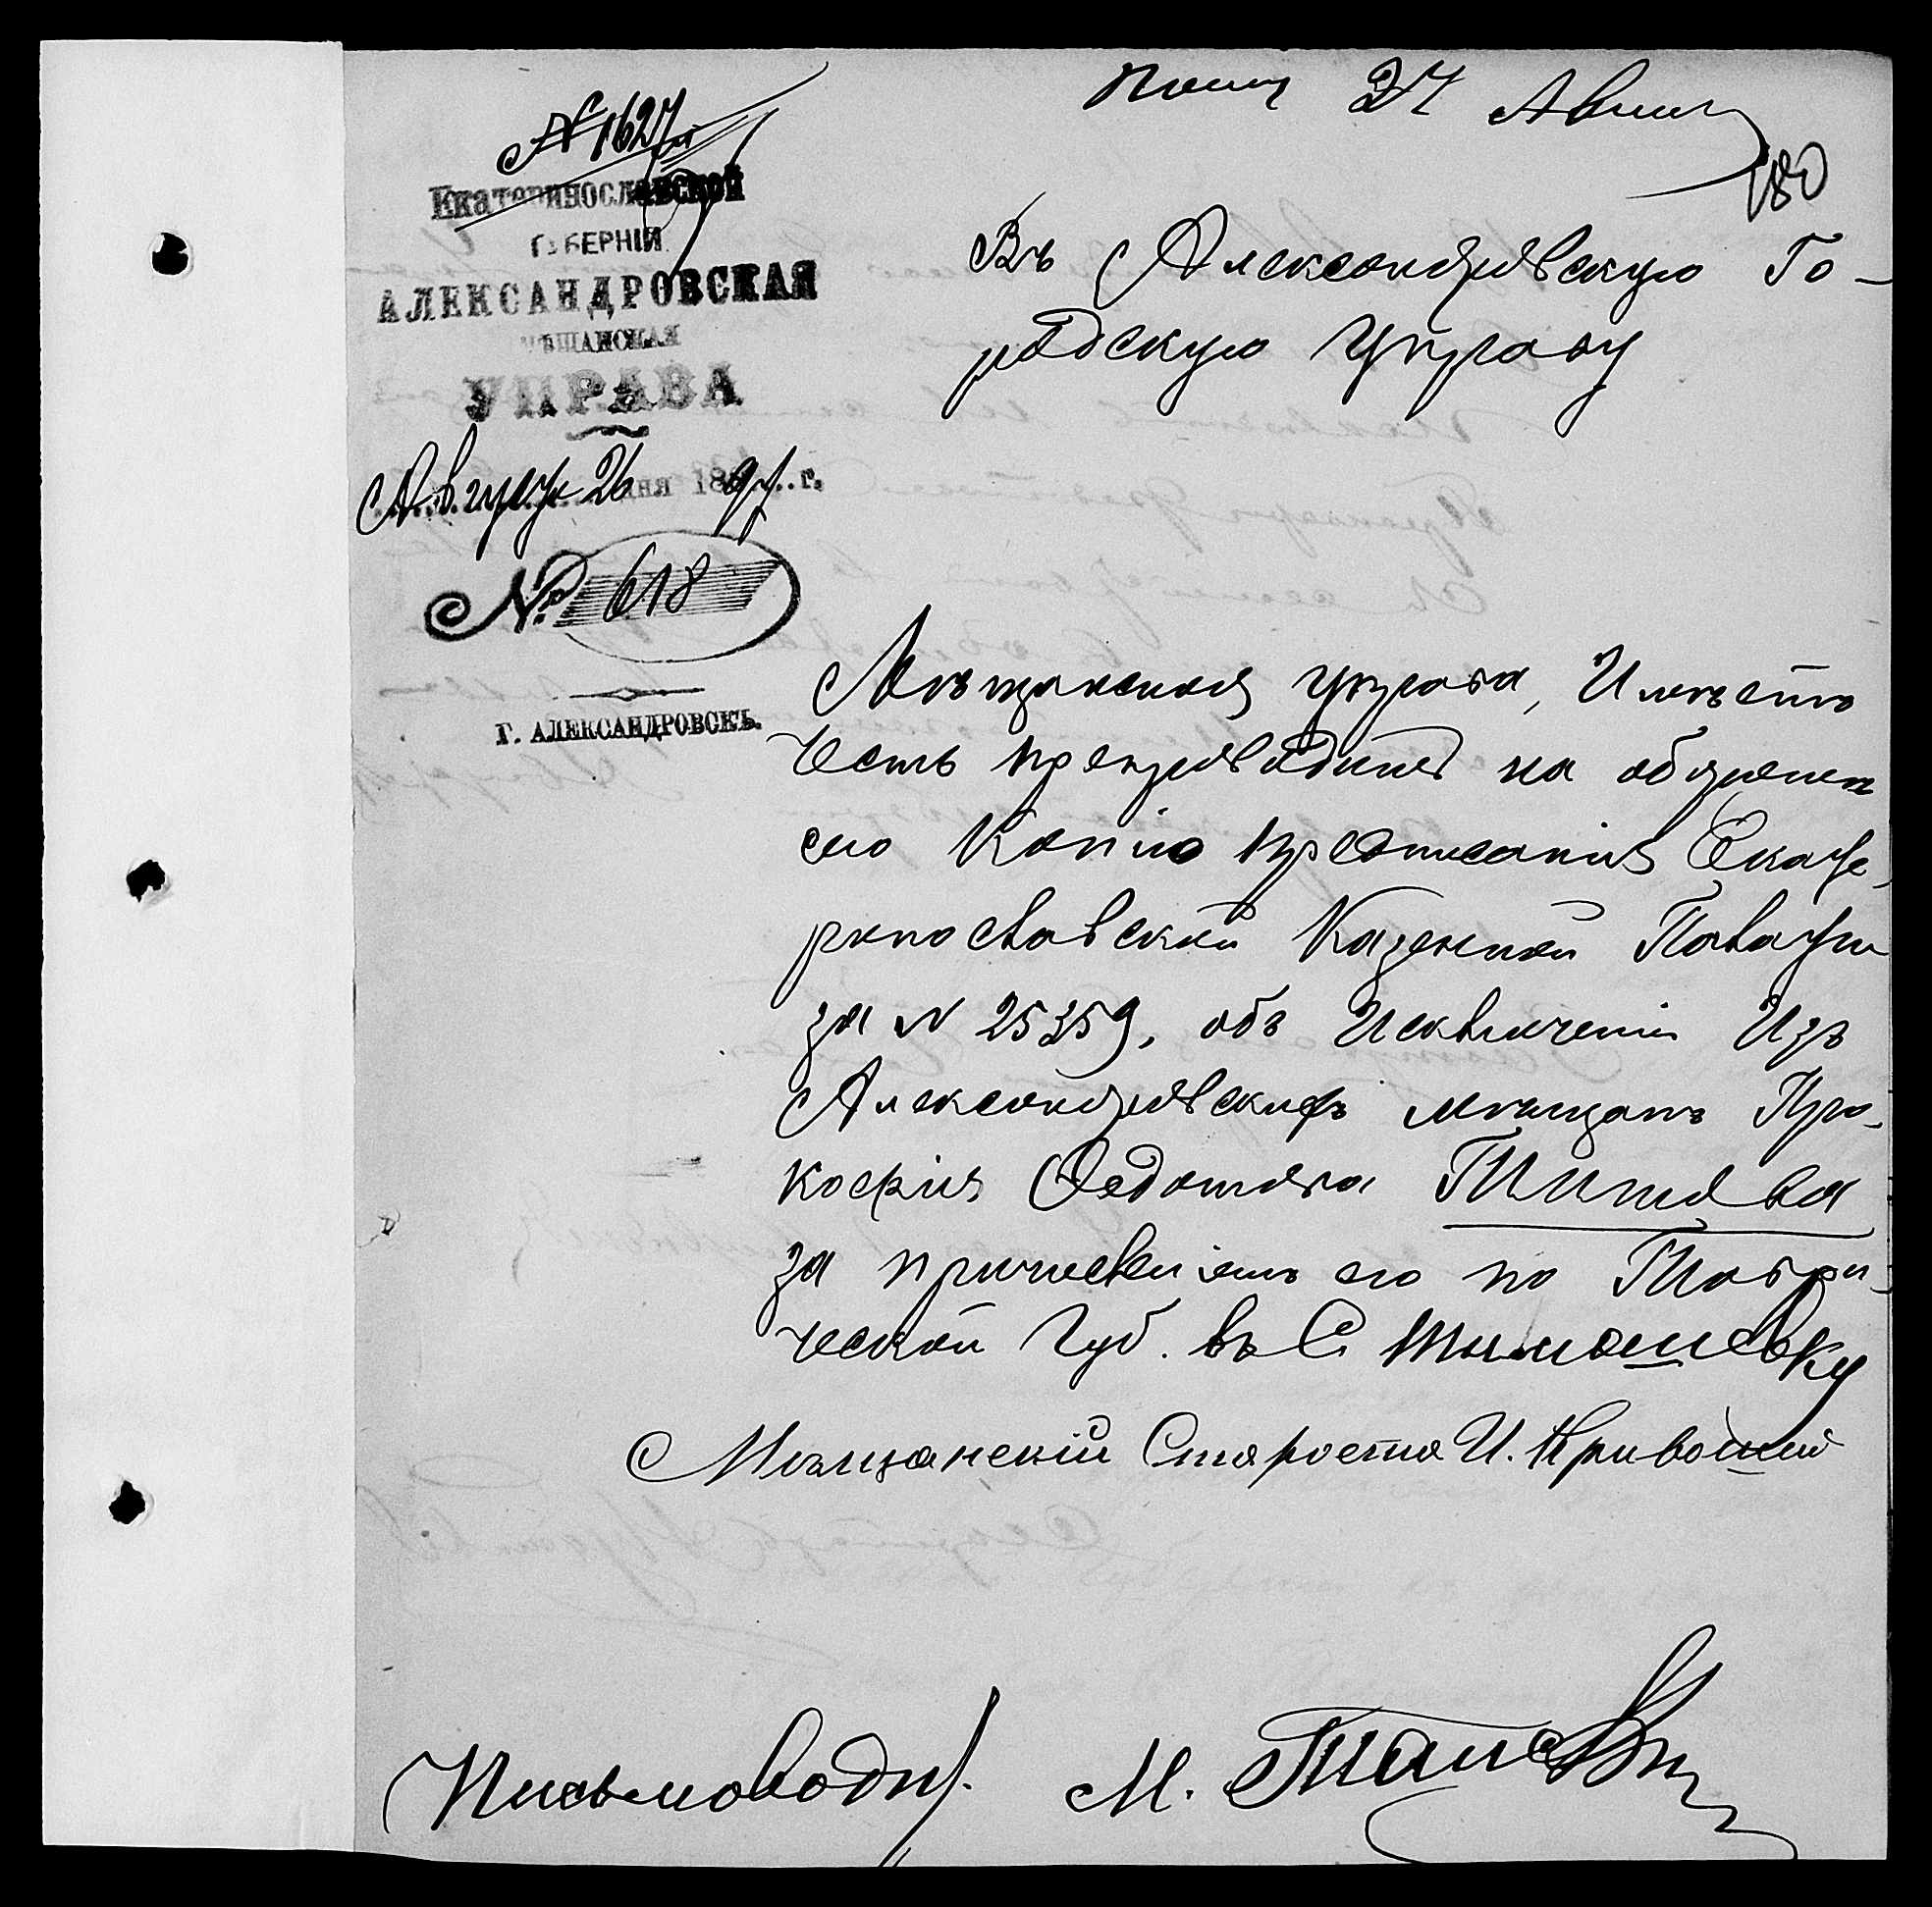 № 1627
Екатеринославской
ГУБЕРНІИ
АЛЕКСАНДРОВСКАЯ
МѢЩАНСКАЯ
УПРАВА
Августа 26 дня 1897 г.
№ 618
Г. АЛЕКСАНДРОВСКЪ.
27 Авг
180
Въ Александровскую Го-
родскую Управу
Мѣщанская управа, Имѣетъ
честь препроводить на
Копію предписанія Екате
ринославской Казенной Палаты
за № 25359, объ Исключеніи Изъ
Александровскихъ мѣщанъ Про-
кофія Федотова Титова
за причисленіемъ его по Таври-
ческой Губ. въ С Тимошевку
Мѣщанскій Староста И. Кривошей
Письмоводит.
М.